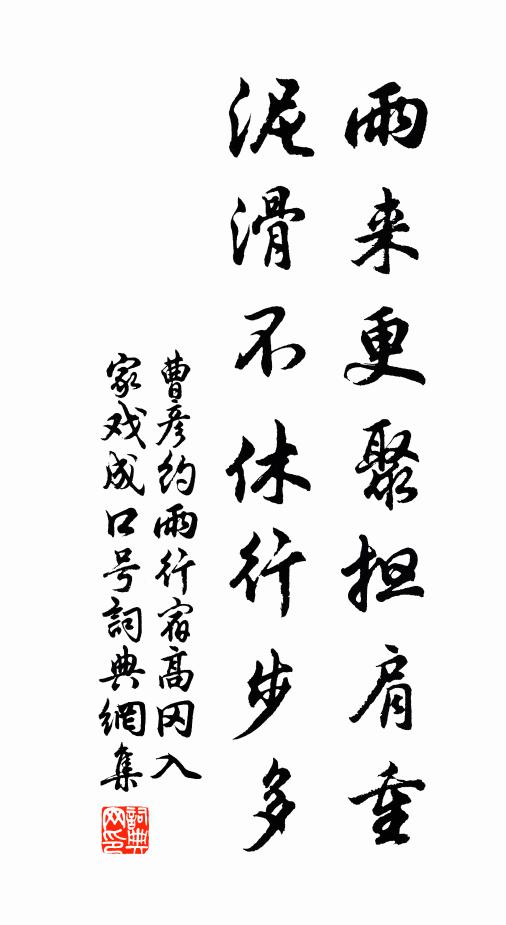 雨来更聚担肩重
泥滑不休行步多
曹彦约雨行宿高冈入
家戏成口号詞典網集
詞典
网印